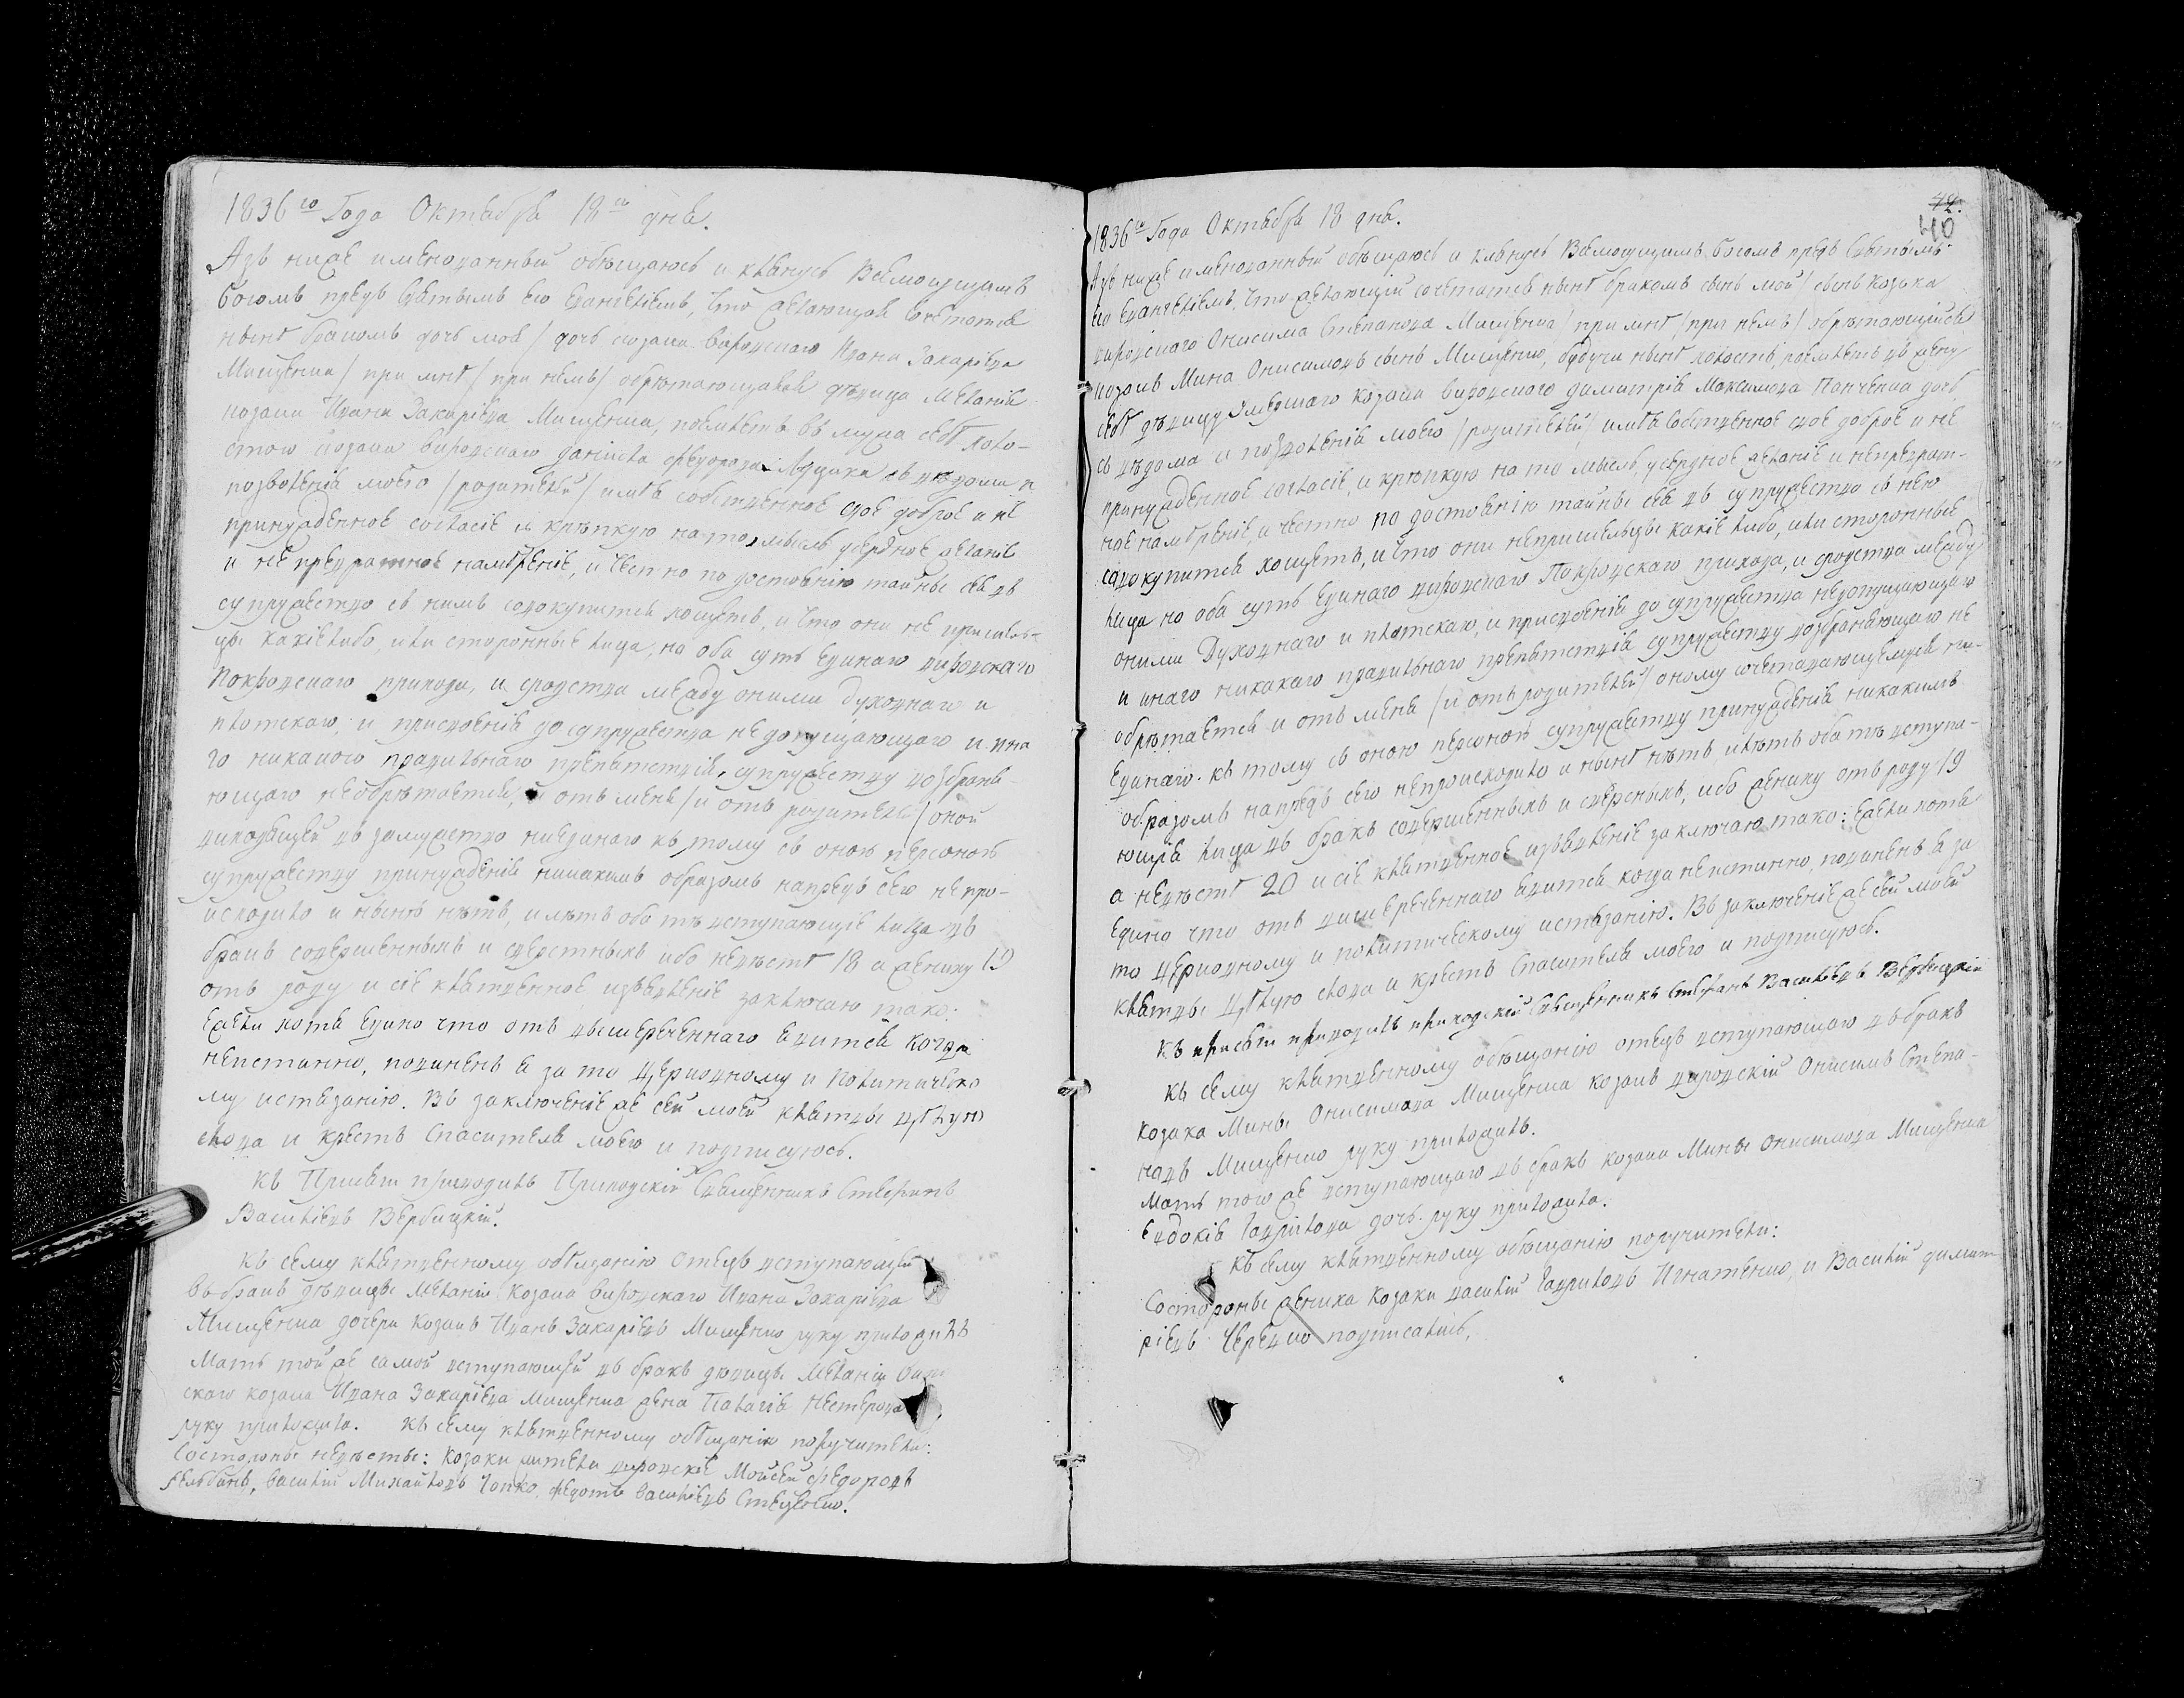 1836го Года Октября 18го дня.
Азъ ниже именованный обѣщаюсь и клянусь Всемогущимъ
богомъ предъ святымъ его Евангелiемъ, что желающая сочетатся
нынѣ бракомъ дочь моя / дочь козака вировскаго Ивана Захарiева
Мищенка / при мнѣ / при немъ / обрѣтающаяся дѣвица Меланiя
козака Ивана Захарiева Мищенка, поемлетъ въ мужа себѣ холо-
стого козака вировскаго данiила федорова съ вѣдома и
позволенiя моего / родителей / имѣя собственное свое доброе и не
принужденное согласiе и крѣпкую на то мысль усердное желанiе
и не превратное намѣренiе, и честно по достоянiю тайны сея въ
супружество съ нимъ совокупится хощетъ, и что они не пришель-
цы какiелибо, или сторонные лица, но оба суть Единаго вировскаго
Покровскаго прихода, и сродства между оними духовнаго и
плотскаго, и присвоенiя до супружества недопущающаго и ина
го никакого правильнаго препятствiя, супружеству возбраня-
ющаго необрѣтается, и отъ мене / и отъ родителей / оной
виходящей въ замужство ниединаго къ тому съ оною персоною
супружеству принужденiя никакимъ образомъ напредь сего непро-
исходило и нынѣ нѣтъ, и лѣтъ оба тѣ вступающiе лица въ
бракъ совершенныхъ и сверстныхъ ибо невѣстѣ 18 а жениху 19
отъ роду и сiе клятвенное извѣщенiе заключаю тако:
Ежели хотя Едино что отъ вышереченнаго явится когда
неистинно, повиненъ я за то Церковному и Политическо
му истязанiю. Въ заключенiе же сей моей клятвы цѣлую
слова и крестъ Спасителя моего и подписуюсь.
Къ Присяги приводилъ Приходскiй Священникъ Стефанъ
Василiевъ Вербицкiй.
Къ сему клятвенному обѣщанiю Отецъ вступающей
въ бракъ дѣвицы Меланiи козака вировскаго Ивана Захарiева
Мищенка дочери козакъ Иванъ Захарiевъ Мищенко руку приложилъ
Мать той же самой вступающей въ бракъ дѣвицы Меланiи виров
скаго козака Ивана Захарiева Мищенка жена Пелагiя Нестерова
руку приложила. Къ сему клятвенному обѣщанiю поручители:
Состороны невѣсты: Козаки жители вировскiе Мойсей федоровъ
Василiй Михайловъ федотъ Василiевъ Стеценко.
42.
40
1836го Года Октября 18 дня.
Азъ ниже именованный обѣщаюсь и клянусь Всемогущимъ богомъ предъ Святымъ
его Евангелiемъ, что желающiй сочетатся нынѣ бракомъ сынъ мой / сынъ козака
вировскаго Онисима Степанова Мищенка / при мнѣ / при немъ / обрѣтающiйся
козакъ Мина Онисимовъ сынъ Мищенко, будучи нынѣ холостъ, поемлетъ въ жену
себѣ дѣвицу умершаго козака вировскаго димитрiя Максимова Панченка дочь
съ вѣдома и позволенiя моего / родителей / имѣя собственное свое доброе и не
принужденное согласiе, и крѣпкую на то мысль, усердное желанiе и непреврат-
ное намѣренiе, и честно по достоянiю тайны сея въ супружество съ нею
совокупится хощетъ, и что они непришельцы какiе либо, или сторонные
лица но оба суть Единаго вировскаго Покровскаго прихода, и сродства между
оними Духовнаго и плотскаго, и присвоенiя до супружества недопущающаго
и инаго никакаго правильнаго препятствiя супружеству возбраняющаго не
обрѣтается и отъ мене / и отъ родителей / оному сочетавающемуся ни-
единаго. къ тому съ оною персоною супружеству принужденiя никакимъ
образомъ напредь сего непроисходило и нынѣ нѣтъ, и лѣтъ оба тѣ вступа-
ющiя лица въ бракъ совершенныхъ и сверсныхъ, ибо жениху отъ роду 19
а невѣстѣ 20 и сiе клятвенное извѣщенiе заключаю тако: Ежели хотя
Едино что отъ вишереченнаго явится когда неистинно, повиненъ я за
то Церковному и политическому истязанiю. Въ заключенiе же сей моей
клятвы Цѣлую слова и крестъ Спасителя моего и подписуюсь.
Къ присяги приводилъ приходскiй Священникъ Стефанъ Василiевъ Вербицкiй
Къ сему клятвенному обѣщанiю отецъ вступающаго въ бракъ
козака Мины Онисимова Мищенка козакъ вировскiй Онисимъ Степа-
новъ Мищенко руку приложилъ.
Мать того же вступающаго въ бракъ козака Мины Онисимова Мищенка
Евдокiя Гаврилова дочь руку приложила.
Къ сему клятвенному обѣщанiю поручители:
Состороны жениха Козаки василiй Гавриловъ Игнатенко, и Василiй димит
рiевъ Чередно подписались,